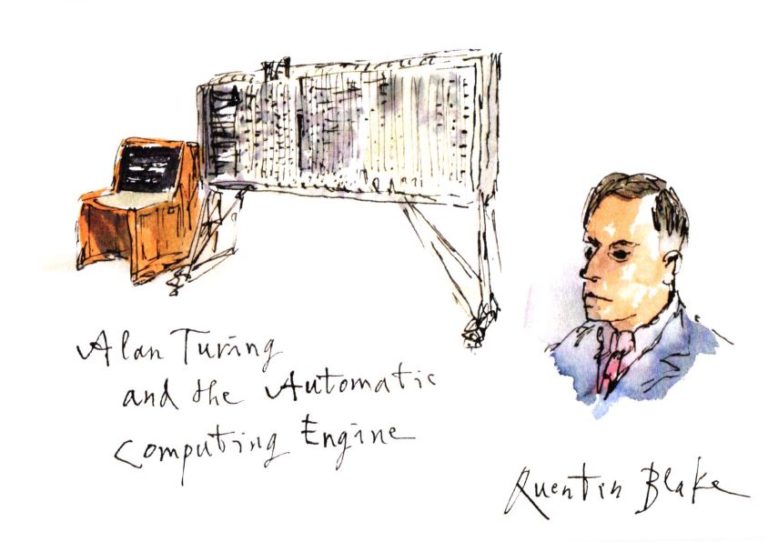 Alan Turing
and the Automatic
Computing Engine
Quentin Blake